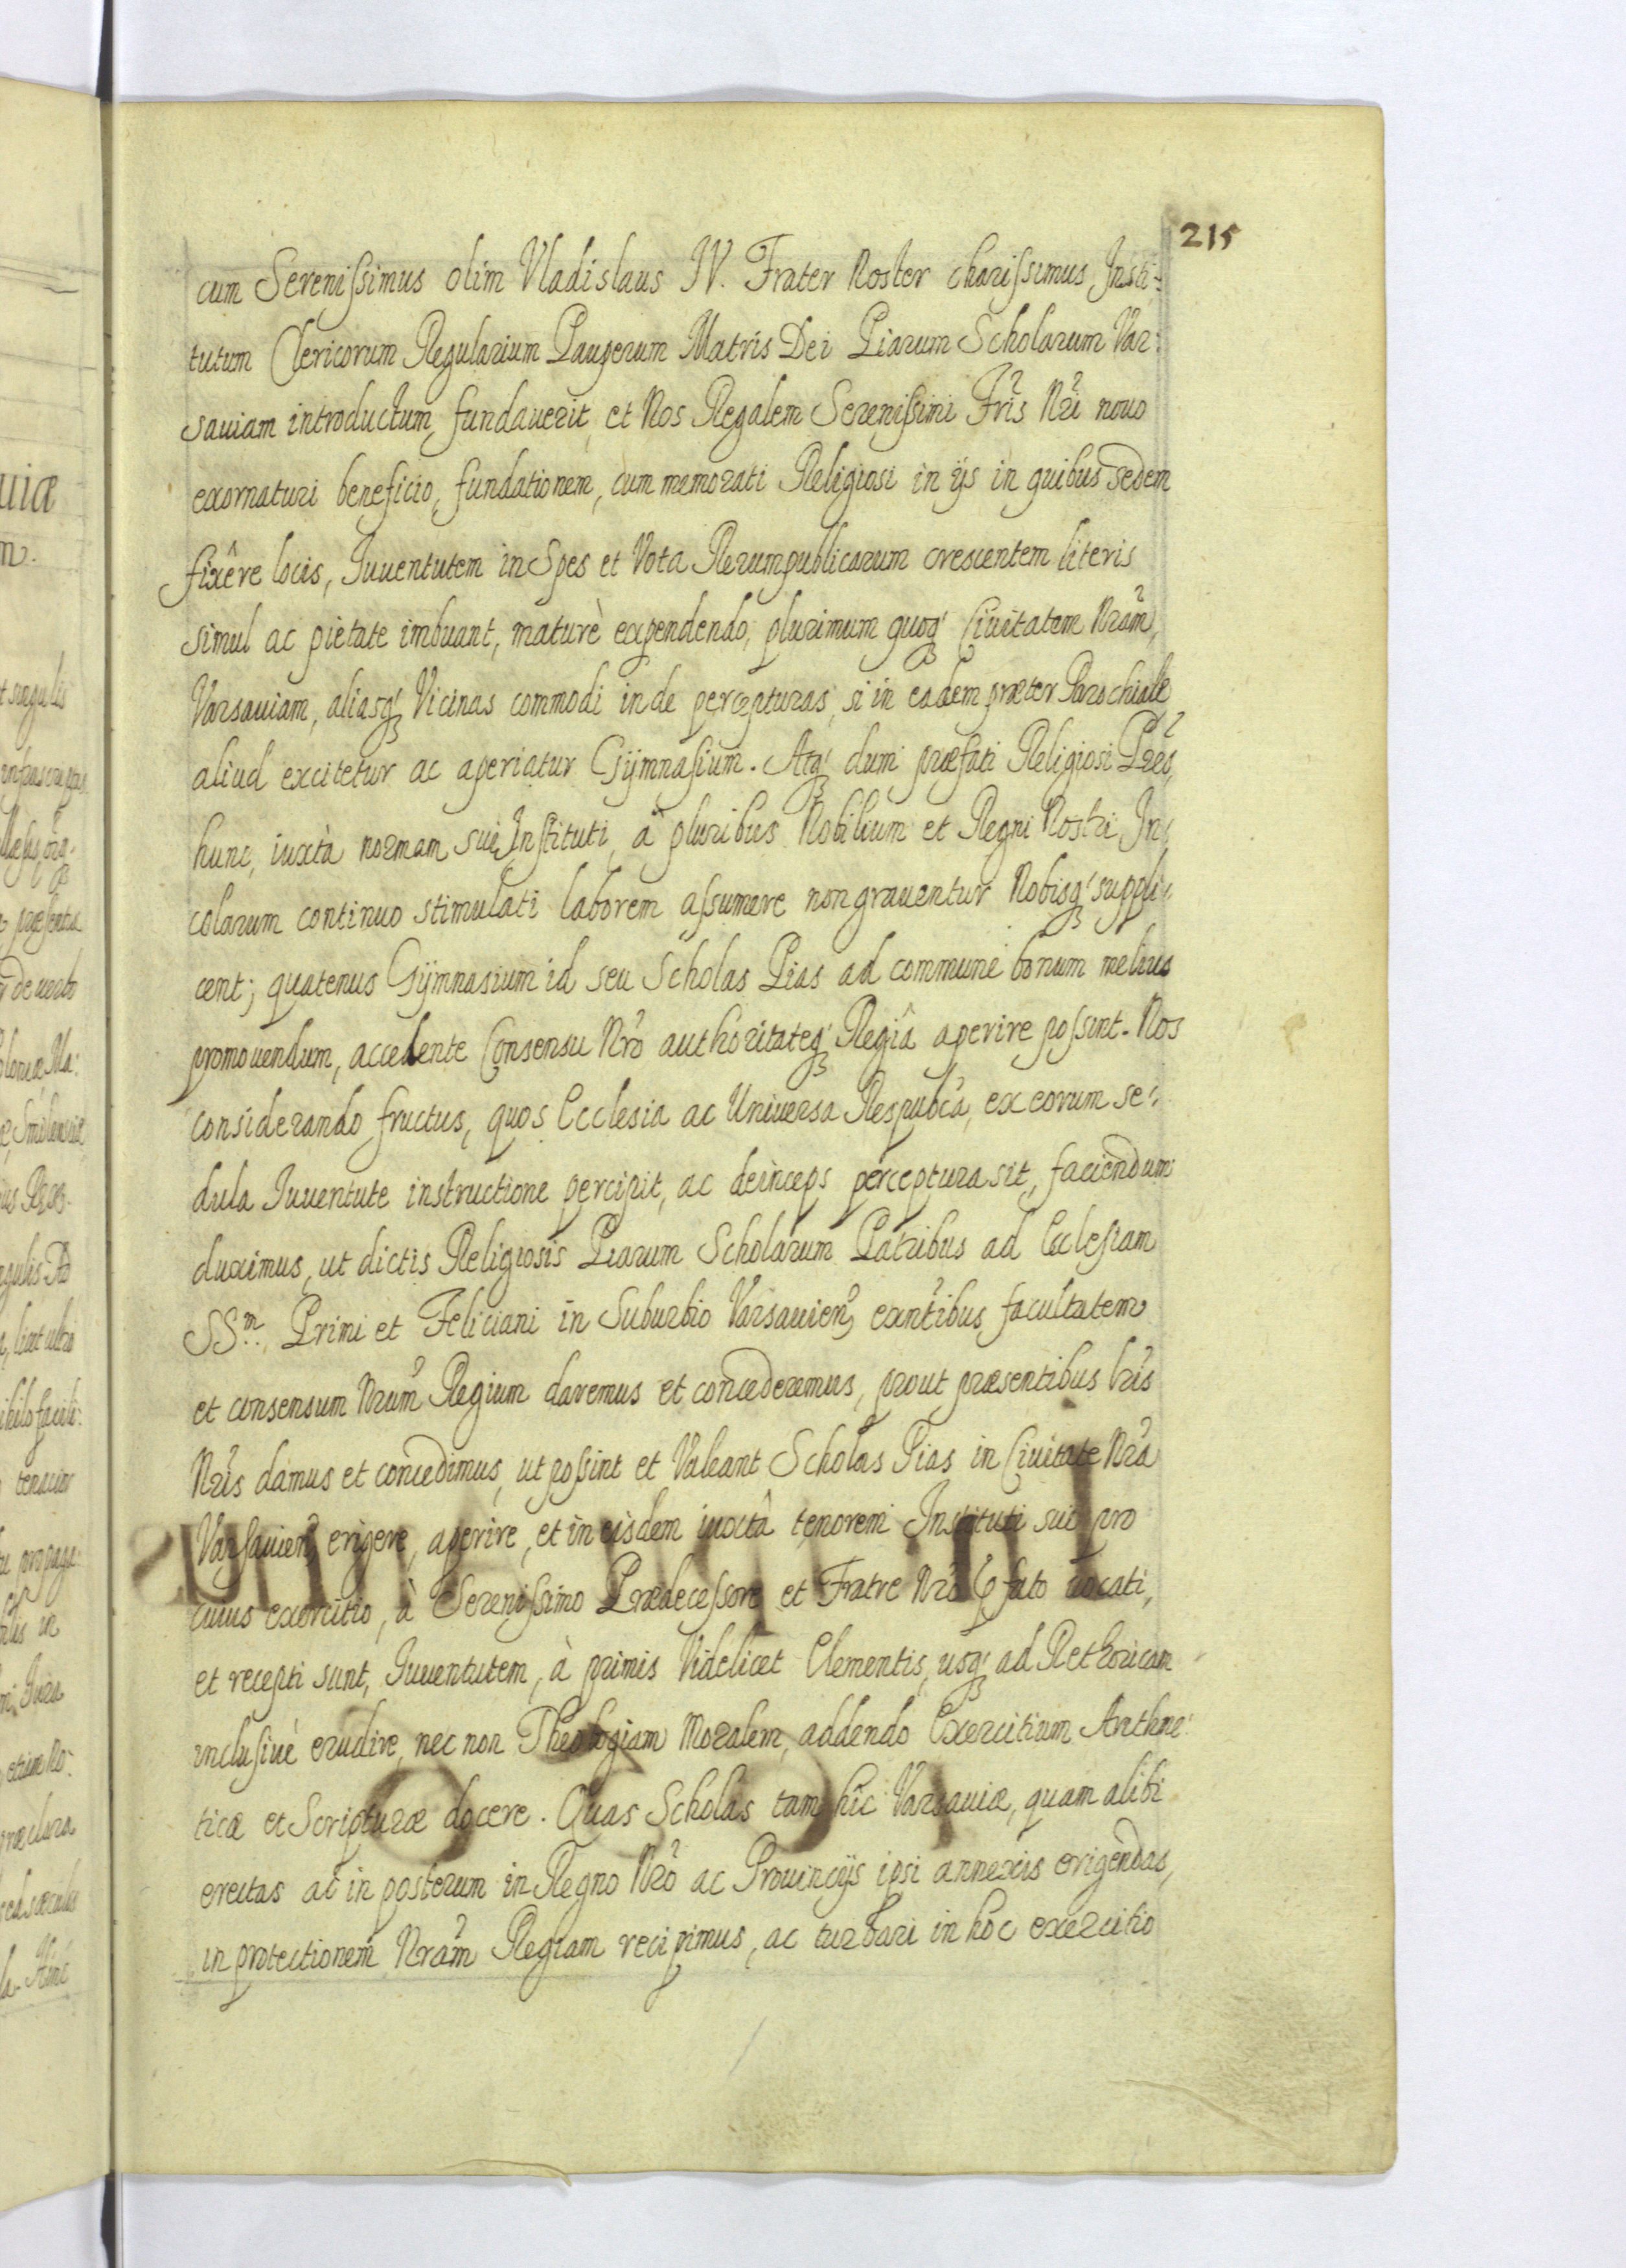 215
cum Serenissimus olim Vladislaus IV. Frater Noster charissimus Insti-
tutum Clericorum Regularium Pauperum Matris Dei Piarum Scholarum Var:
sauiam introductum, fundauerit, et Nos Regalem Serenissimi Fris Nri nouo
exornaturi beneficio, fundationem, cum memorati Religiosi in ijs in quibus sedem
fixêre locis, Iuuentutem in Spes et Vota Rerumpublicarum crescentem literis
simul ac pietate imbuant, maturè expendendo, plurimum quoq Ciuitatem Nram,
Varsauiam, aliasq Vicinas commodi inde percepturas, si in eadem præter Parochiale
aliud excitetur ac aperiatur Gÿmnasium. Atq dum præfati Religiosi Pres,
hunc, iuxtà normam sui Instituti, à pluribus Nobilium et Regni Nostri In:
colarum continuo stimulati laborem assumere non grauentur Nobisq suppli:
cent; quatenus Gÿmnasium id seu Scholas Pias ad commune bonum melius
promouendum, accedente Consensu Nro authoritateq Regiâ aperire possint. Nos
considerando fructus, quos Ecclesia ac Universa Respubca, ex eorum se:
dula Iuuentute instructione percipit, ac deinceps perceptura sit, faciendum
duximus, ut dictis Religiosis Piarum Scholarum Patribus ad Ecclesiam
SSm. Primi et Feliciani in Suburbio Varsauien, exntibus facultatem
et consensum Nrum Regium daremus et concederemus, prout præsentibus lris
Nris damus et concedimus, ut possint et Valeant Scholas Pias in Ciuitate Nra
Varsauien, erigere, aperire, et in eisdem iuxtà tenorem Instituti sui pro
cuius exercitio, à Serenissimo Prædecessore et Fratre Nro fato vocati,
et recepti sunt, Iuuentutem, à primis Videlicet Elementis, usq ad Rethoricam
inclusiuè erudire, nec non Theologiam Moralem, addendo Exercitium Arithme:
ticæ et Scripturæ docere. Quas Scholas tam hîc Varsauiæ, quam alibi
erectas ac in posterum in Regno Nro ac Prouincijs ipsi annexis erigendas,
in protectionem Nram Regiam recipimus, ac turbari in hoc exercitio